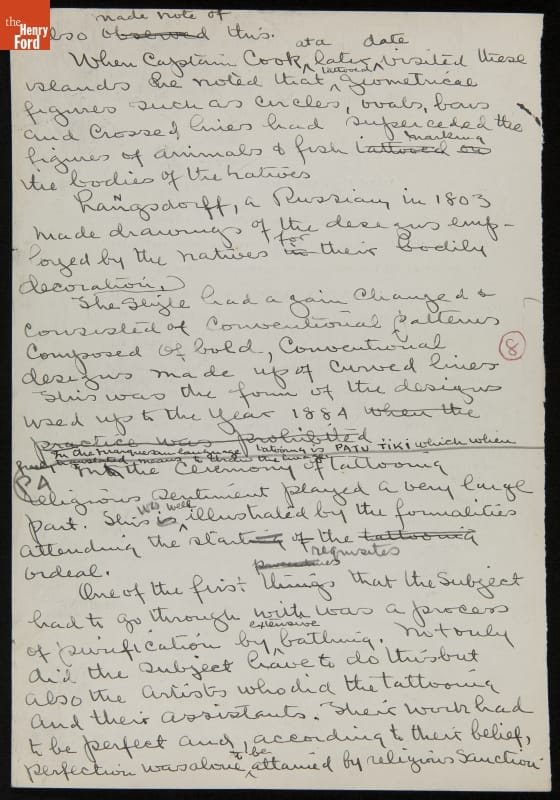 the
Henry
Ford
made note of
also observed this. at a date
When Captain Cook later visited these
islands he noted that tattooed geometrical
figures such as circles, ovals, bars
and crossed lines had superceded the
marking
figures of animals & fish tattooed on
the bodies of the natives
Langsdorff, a Russian, in 1803
made drawings of the designs emp-
loyed by the natives in for their bodily
decoration.
The style had again changed &
consisted of conventional patterns
composed of bold, conventional
8
designs made up of curved lines
This was the form of the designs
used up to the year 1884 when the
practice was prohibited
In the Marquesan language tatooing is PATU TIKI which when
freely translated means to strike the image
PA
In the ceremony of tattooing
religious sentiment played a very large
part. This is was well illustrated by the formalities
attending the starting of the tattooing
ordeal. requisites
One of the first things that the subject
had to go through with was a process
of purification by extensive bathing. Not only
did the subject have to do this but
also the artists who did the tattooing
and their assistants. Their work had
to be perfect and, according to their belief,
perfection was alone to be attained by religious sanction